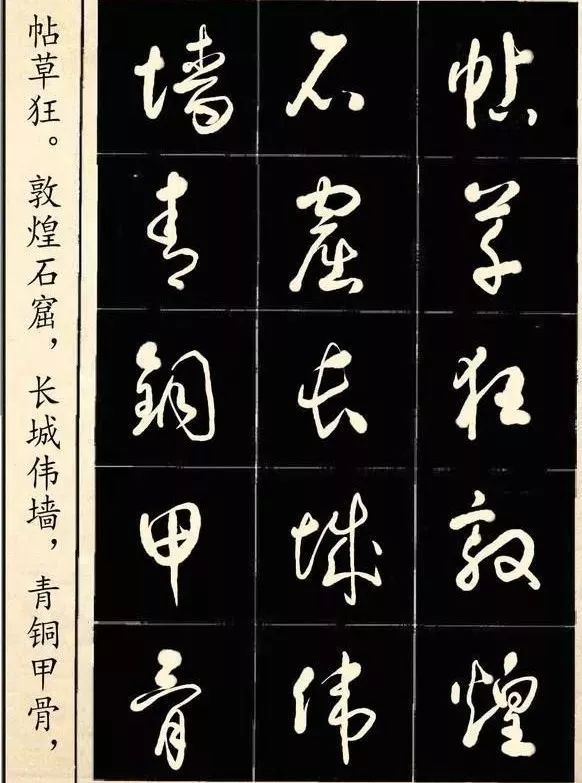 帖草狂。敦煌石窟，长城伟墙，青铜甲骨，
帖草狂敦煌
石窟长城伟
墙青铜甲骨